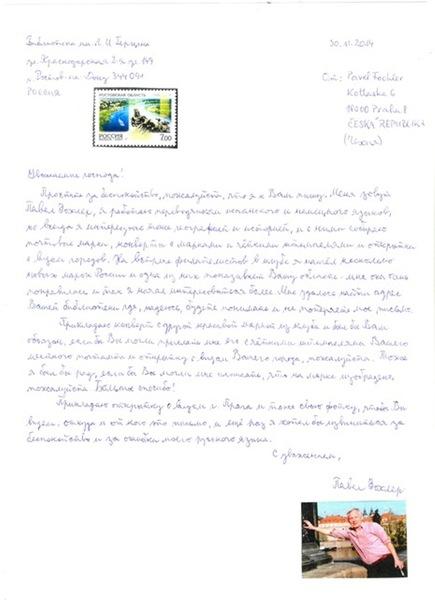 Библиотека им. А. И. Герцена
ул. Краснодарская 2-я д. 149
г. Ростов-на-Дону 344091
РОССИЯ
30.11.2014
От: Pavel Fochler
Kotlaska 6
18000 Praha 8
ČESKÁ REPUBLIKA
(Чехия)
РОСТОВСКАЯ ОБЛАСТЬ
РОССИЯ
7.00
Уважаемые господа!
Простите за беспокойство, пожалуйста, что я к Вам пишу. Меня зовут
Павел Фохлер, я работаю переводчиком испанского и немецкого языков,
но всегда я интересуюсь тоже географией и историей, и с ними собираю
почтовые марки, конверты с марками и чёткими штемпелями и открытки
с видом городов. На встрече филателистов в клубе я нашёл несколько
новых марок России и одна из них показывает Вашу область - мне она так
понравилась и так я начал интересоваться более. Мне удалось найти адрес
Вашей библиотеки где, надеюсь, будете понимать и не потеряете мое письмо.
Прикладаю конверт с другой красивой маркой из клуба и был бы Вам
обязан, если бы Вы могли прислать мне его с чёткими штемпелями Вашего
местного почтамта и открытку с видом Вашего города, пожалуйста. Тоже
я был бы рад, если бы Вы могли мне написать, что на марке изображено,
пожалуйста. Большое спасибо!
Прикладаю открытку с видом г. Прага и тоже свою фотку, чтобы Вы
видели, откуда и от кого это письмо, и ещё раз я хотел бы извиниться за
беспокойство и за ошибки моего русского языка.
С уважением,
Павел Фохлер